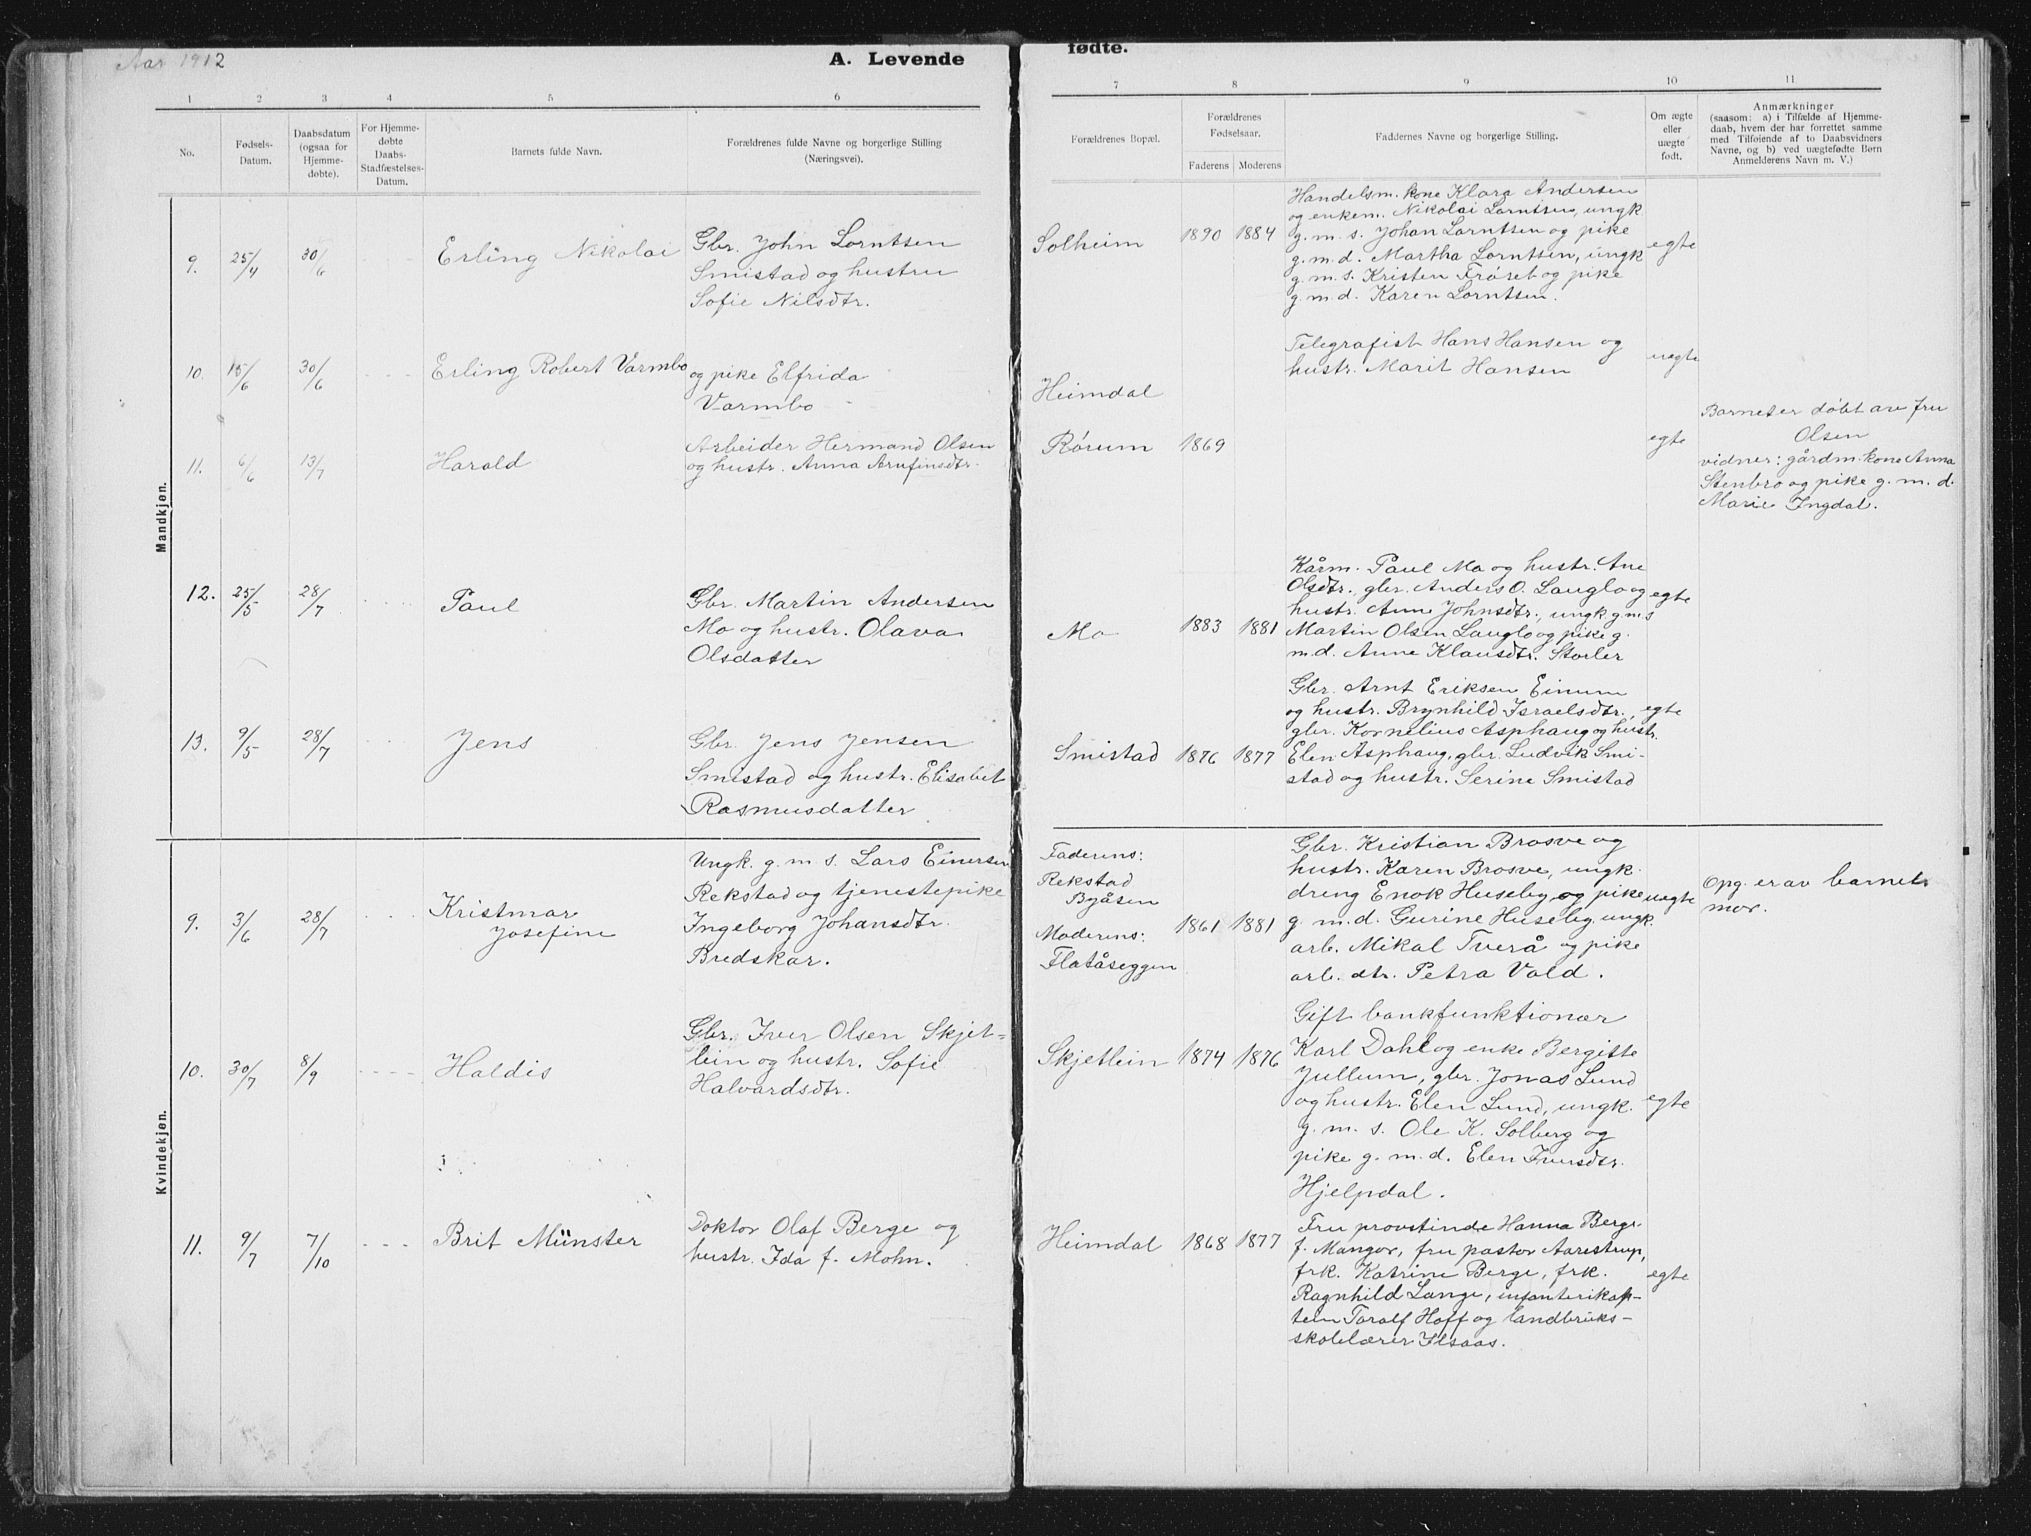 Aar 1912
A. Levende
fødte.
1 2 3 4 5 6
7 8 9 10 11
No.
Fødsels-
Datum.
Daabsdatum
(ogsaa for
Hjemme-
døbte).
For Hjemme-
døbte
Daabs-
Stadfæstelses-
Datum.
Barnets fulde Navn.
Forældrenes fulde Navne og borgerlige Stilling
(Næringsvei).
Forældrenes Bopæl.
Forældrenes
Fødselsaar.
Faderens Moderens
Faddernes Navne og borgerlige Stilling.
Om ægte
eller
uægte
født.
Anmærkninger
(saasom: a) i Tilfælde af Hjemme-
daab, hvem der har forrettet samme
med Tilføiende af to Daabsvidners
Navne, og b) ved uægtefødte Børn
Anmelderens Navn m. V.)
Mandkjøn.
9. 25/4 30/6 Erling Nikolai
Gbr. John Lorntsen
Smistad og hustru
Sofie Nilsdtr.
Solheim 1890 1884
Handelsm. kone Klara Andersen
og enkem. Nikolai Lorntsen, ungk.
g. m. s. Johan Lorntsen og pike
g. m. d. Martha Lorntsen, ungk
g. m. s. Kristen Frøset og pike
g. m. d. Karen Lorntsen.
egte
10. 15/6 30/6 Erling Robert Varmbo
og pike Elfrida
Varmbo
Heimdal
Telegrafist Hans Hansen og
hustr. Marit Hansen
uegte
11. 6/6 13/7 Harald
Arbeider Hermand Olsen
og hustr. Anna Serufinsdtr.
Rørum 1869
egte
Barnet er døbt av fru
Olsen
vidner: gårdm. kone Anna
Stenbro og pike g. m. d.
Marie Ingdal.
12. 25/5 28/7 Paul
Gbr. Martin Andersen
Mo og hustr. Olava
Olsdatter
Mo 1883 1881
Kårm. Paul Mo og hustr. Ane
Olsdtr. gbr. Anders O. Lauglo og
hustr. Anne Johnsdtr., ungk g. m. s
Martin Olsen Lauglo og pike g.
m. d. Anne Klausdtr. Storler
egte
13. 9/5 28/7 Jens
Gbr. Jens Jensen
Smistad og hustr. Elisabet
Rasmusdatter
Smistad 1876 1877
Gbr. Arnt Eriksen Einum
og hustr. Brynhild Israelsdtr.,
gbr. Kornelius Asphaug og hustr.
Elen Asphaug, gbr. Ludvik Smi-
stad og hustr. Serine Smistad
egte
Kvindekjøn.
9. 3/6 28/7 Kristmar
Josefine
Ungk. g. m. s. Lars Einersen
Rekstad og tjenestepike
Ingeborg Johansdtr.
Bredskar.
Faderens:
Rekstad
Byåsen
Moderens:
Flatåseggen
1861 1881
Gbr. Kristian Brøsve og
hustr. Karen Brøsve, ungk.
dreng Enok Huseby og pike
g. m. d. Gurine Huseby, ungk.
arb. Mikal Tverå og pike
arb. dtr. Petra Vold.
uegte
Opg. er av barnets
mor.
10. 30/7 8/9 Haldis
Gbr. Iver Olsen Skjet-
lein og hustr. Sofie
Halvardsdtr.
Skjetlein 1874 1876
Gift bankfunktionær
Karl Dahl og enke Bergitte
Jullum, gbr. Jonas Lund
og hustr. Elen Lund, ungk.
g. m. s. Ole K. Solberg og
pike g. m. d. Elen Iversdtr.
Hjelpdal.
egte
11. 9/7 7/10 Brit Münster
Doktor Olaf Berge og
hustr. Ida f. Mohn.
Heimdal 1868 1877
Fru provstinde Hanna Berge
f. Mangor, fru pastor Aarestrup,
frk. Katrine Berge, frk.
Ragnhild Lange, infanterikap-
tein Toralf Hoff og landbruks-
skolelærer Ilsaas.
egte